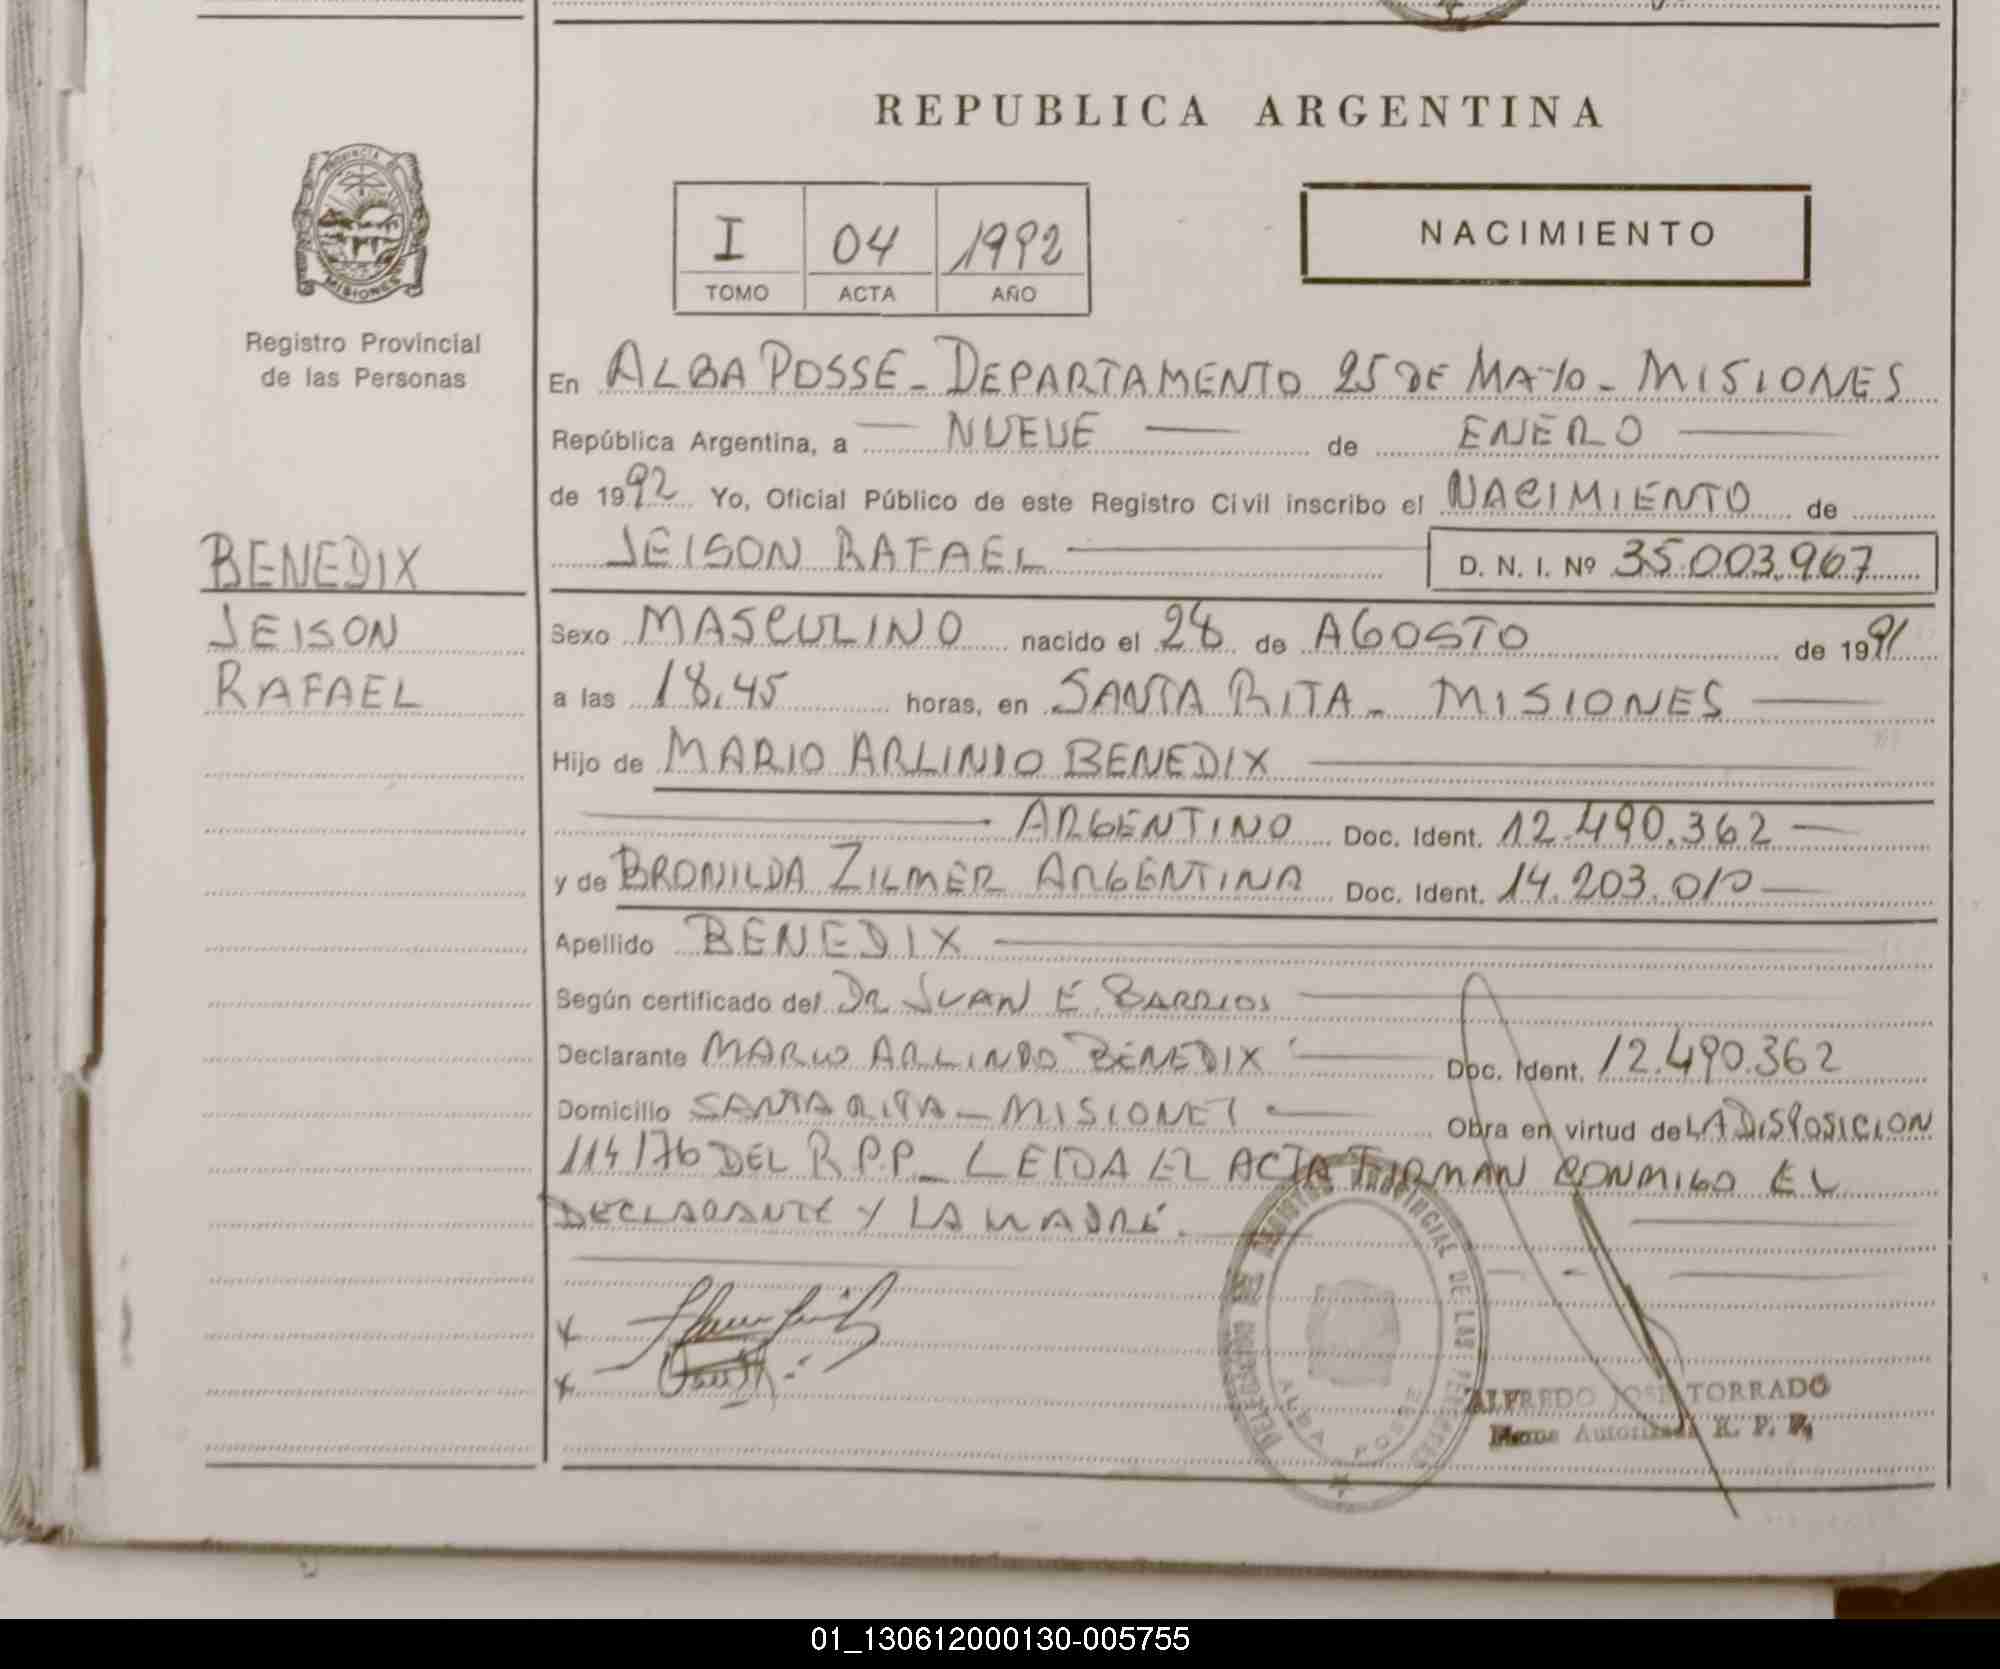 REPUBLICA ARGENTINA
PROVINCIA DE
MISIONES
Registro Provincial
de las Personas
I 04 1992
TOMO ACTA AÑO
NACIMIENTO
En ALBA POSSE - DEPARTAMENTO 25 DE MAYO - MISIONES
República Argentina, a NUEVE de ENERO
de 1992 Yo, Oficial Público de este Registro Civil inscribo el NACIMIENTO de
JEISON RAFAEL D. N. I. Nº 35.003.967
BENEDIX
JEISON
RAFAEL
Sexo MASCULINO nacido el 28 de AGOSTO de 1991
a las 18.45 horas, en SANTA RITA - MISIONES
Hijo de MARIO ARLINDO BENEDIX
ARGENTINO Doc. Ident. 12.490.362
y de BRONILDA ZILMER ARGENTINA Doc. Ident. 14.203.010
Apellido BENEDIX
Según certificado del DR JUAN E. BARRIOS
Declarante MARIO ARLINDO BENEDIX Doc. Ident. 12.490.362
Domicilio SANTA RITA - MISIONES Obra en virtud de LA DISPOSICION
114/76 DEL R.P.P - LEIDA EL ACTA FIRMAN CONMIGO EL
DECLARANTE Y LA MADRE.
x
x
REGISTRO PROVINCIAL DE LAS PERSONAS
ALBA POSSE
ALFREDO JOSE TORRADO
Autorizada R. P. P.
01_130612000130-005755